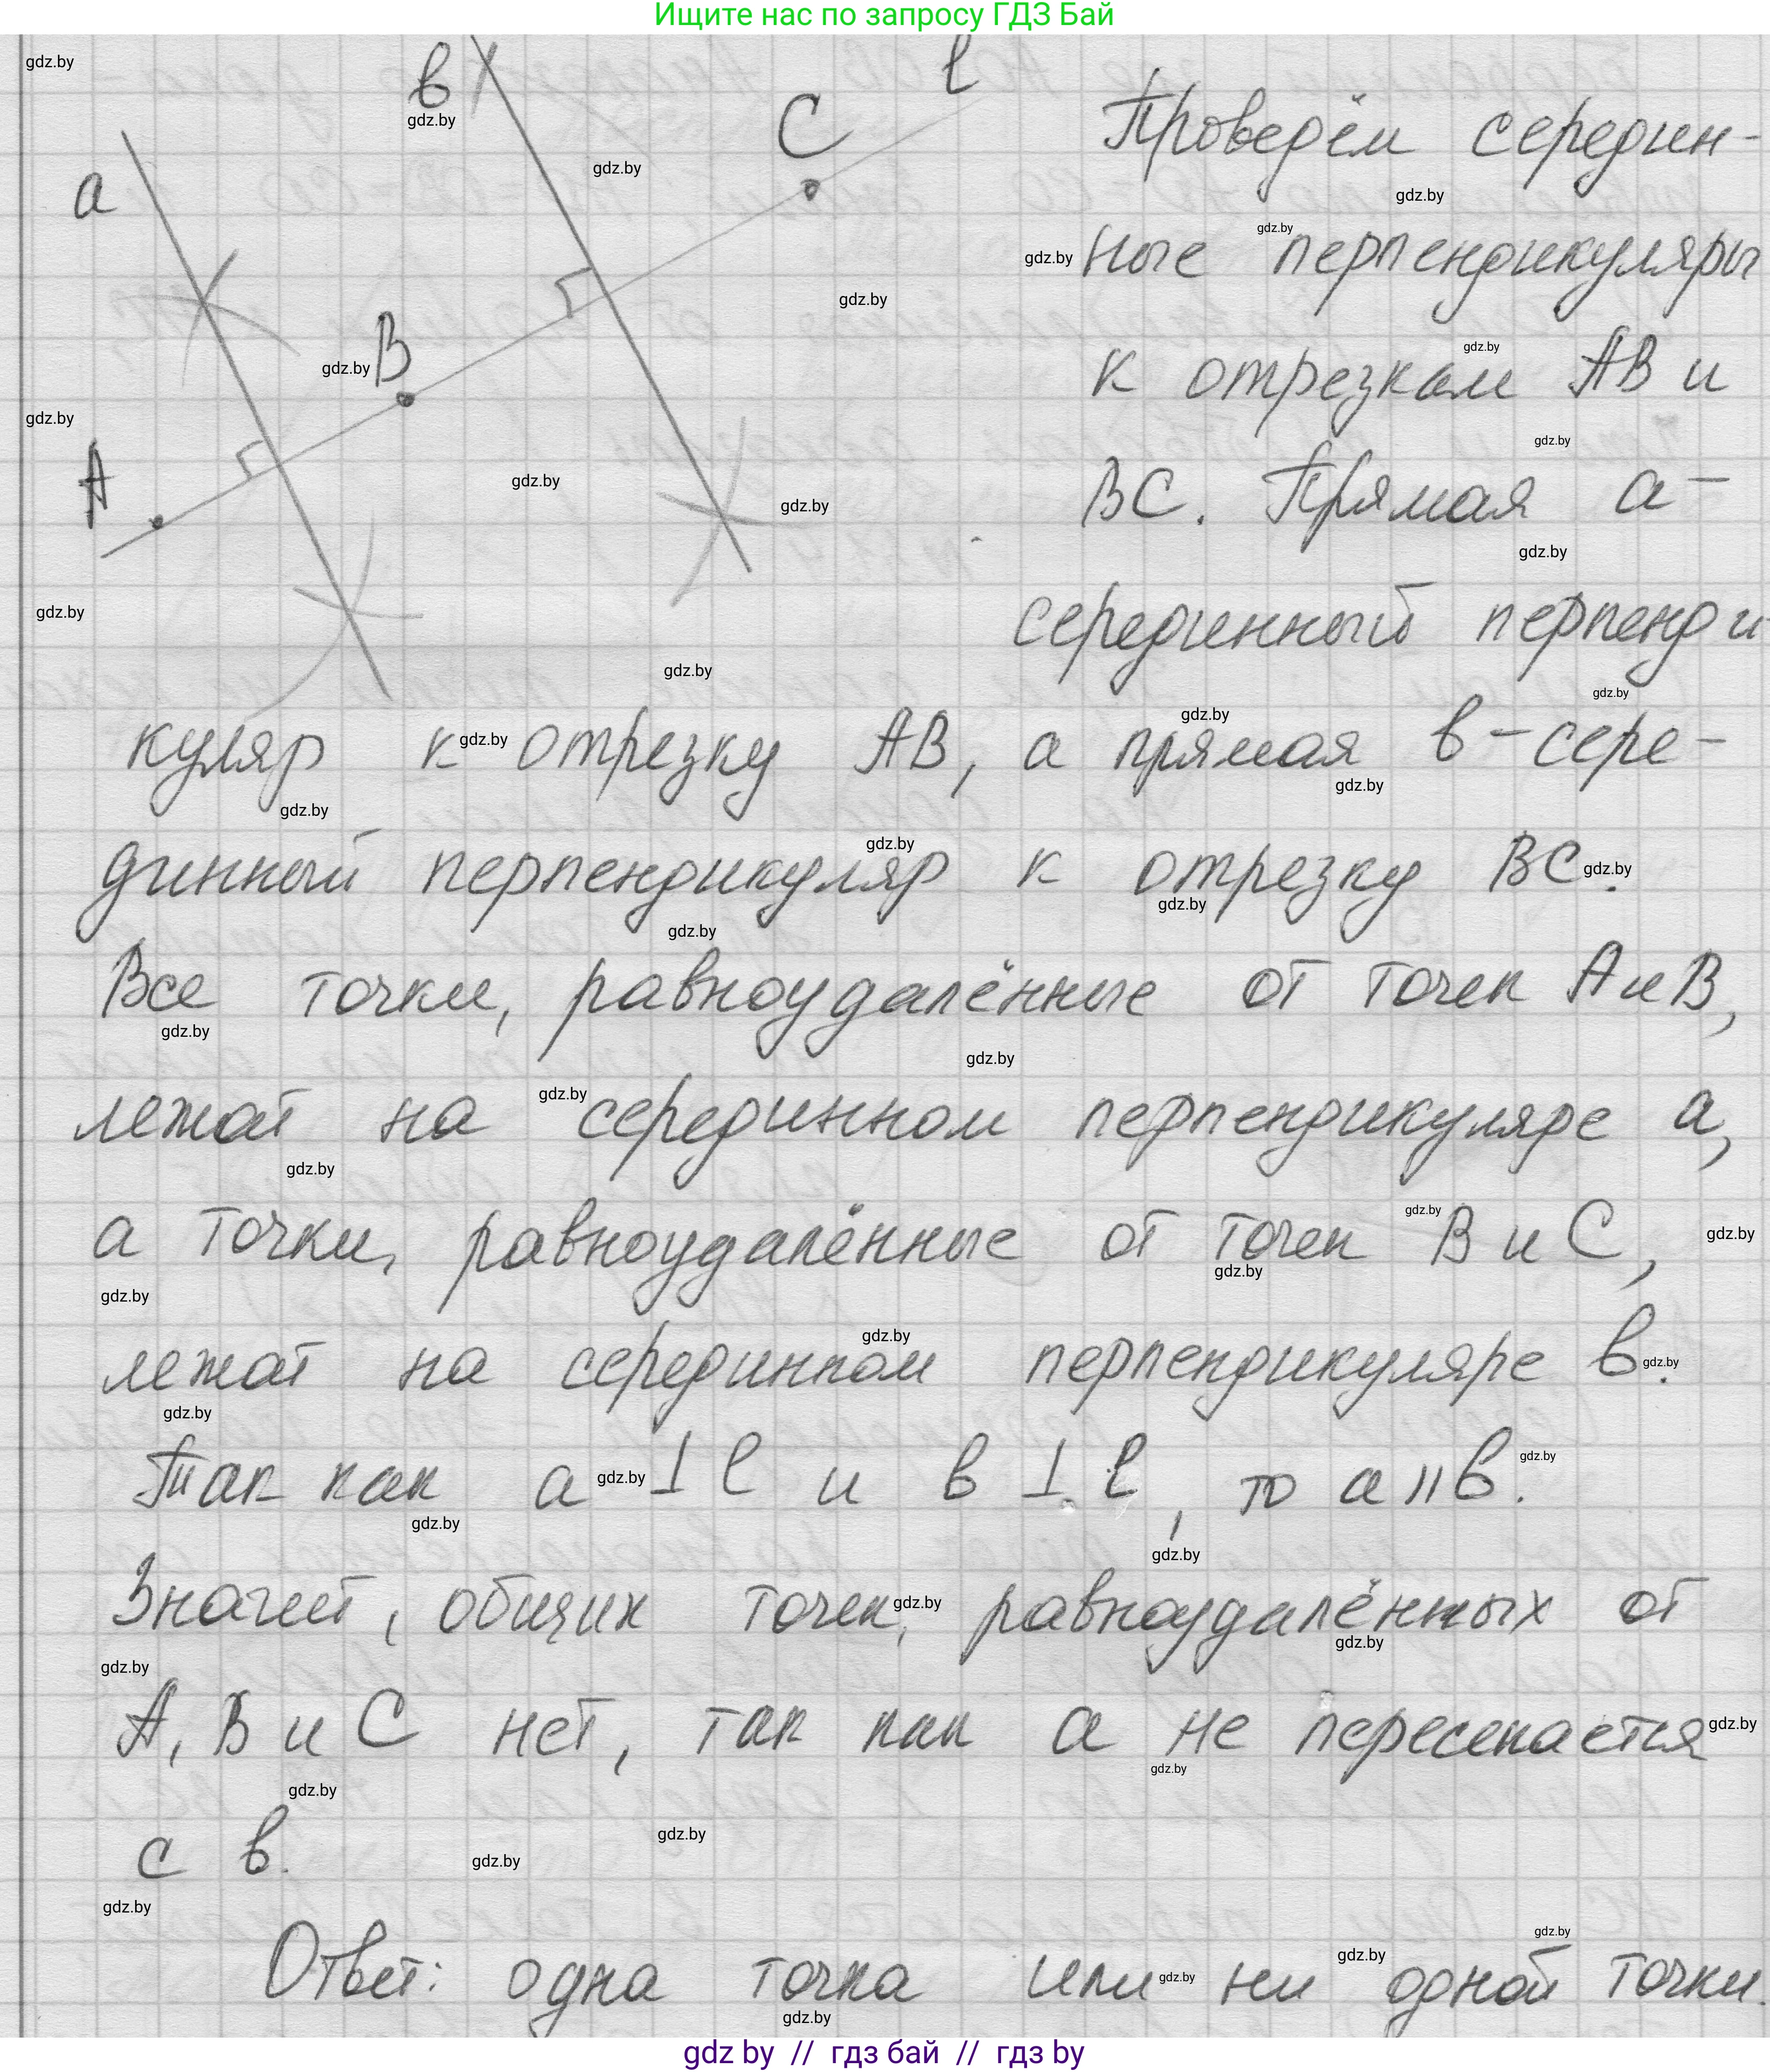 Ищите нас по запросу ГДЗ Бай
в
l
C
a
B
A
Проверём середин-
ные перпендикуляры
к отрезкам АВ и
ВС. Прямая а-
серединный перпенди
куляр к отрезку АВ, а прямая в-сере-
динный перпендикуляр к отрезку ВС.
Все точки, равноудалённые от точек А и В,
лежат на серединном перпендикуляре а,
а точки, равноудалённые от точек В и С,
лежат на серединном перпендикуляре в.
Так как а ⊥ l и в ⊥ l, то а || в.
Значит, общих точек, равноудалённых от
А, В и С нет, так как а не пересекается
с в.
Ответ: одна точка или ни одной точки.
gdz by // гдз бай // гдз by